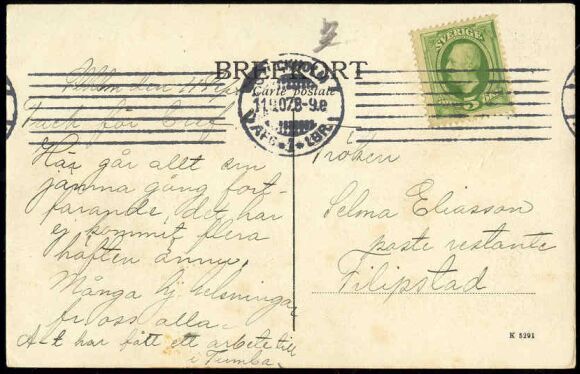 BREFKORT
Carte postale
SVERIGE
5
STOCKHOLM
11.9.07.8-9.e
1
LBR.
Sthlm den 11/9
Tack för bref.
Här går allt sin
jämna gång fort-
farande, det har
ej kommit flera
häften ännu.
Många hj. helsningar
fr oss alla.
A-t har fått ett arbete till
i Tumba.
Fröken
Selma Eliasson
poste restante
Filipstad
K 5291